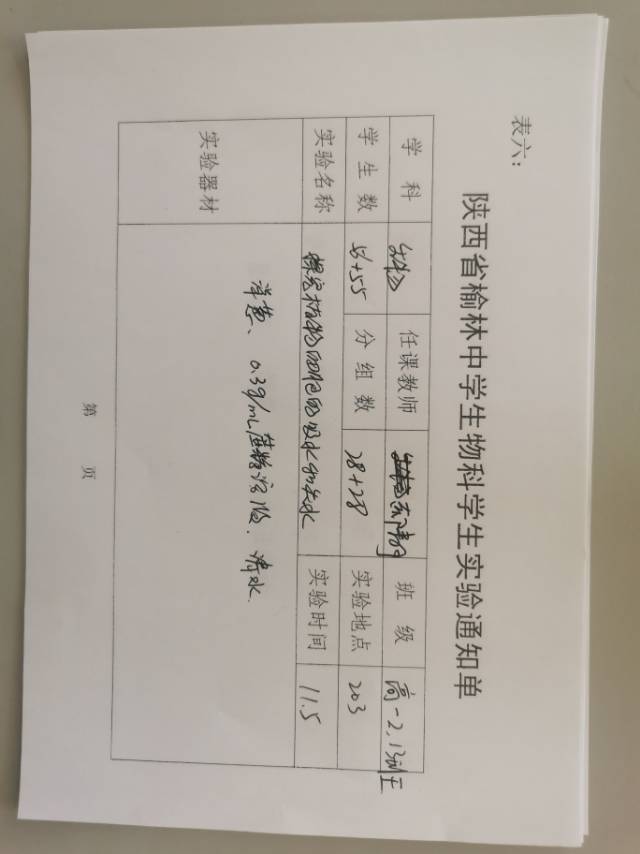 表六:
陕西省榆林中学生物科学生实验通知单
学 科 生物 任课教师 班 级 高一2,13班
学 生 数 56+55 分 组 数 28+28 实验地点 203
实验名称 探究植物细胞的吸水和失水 实验时间 11.5
实验器材 洋葱、0.3g/mL蔗糖溶液、清水.
第 页